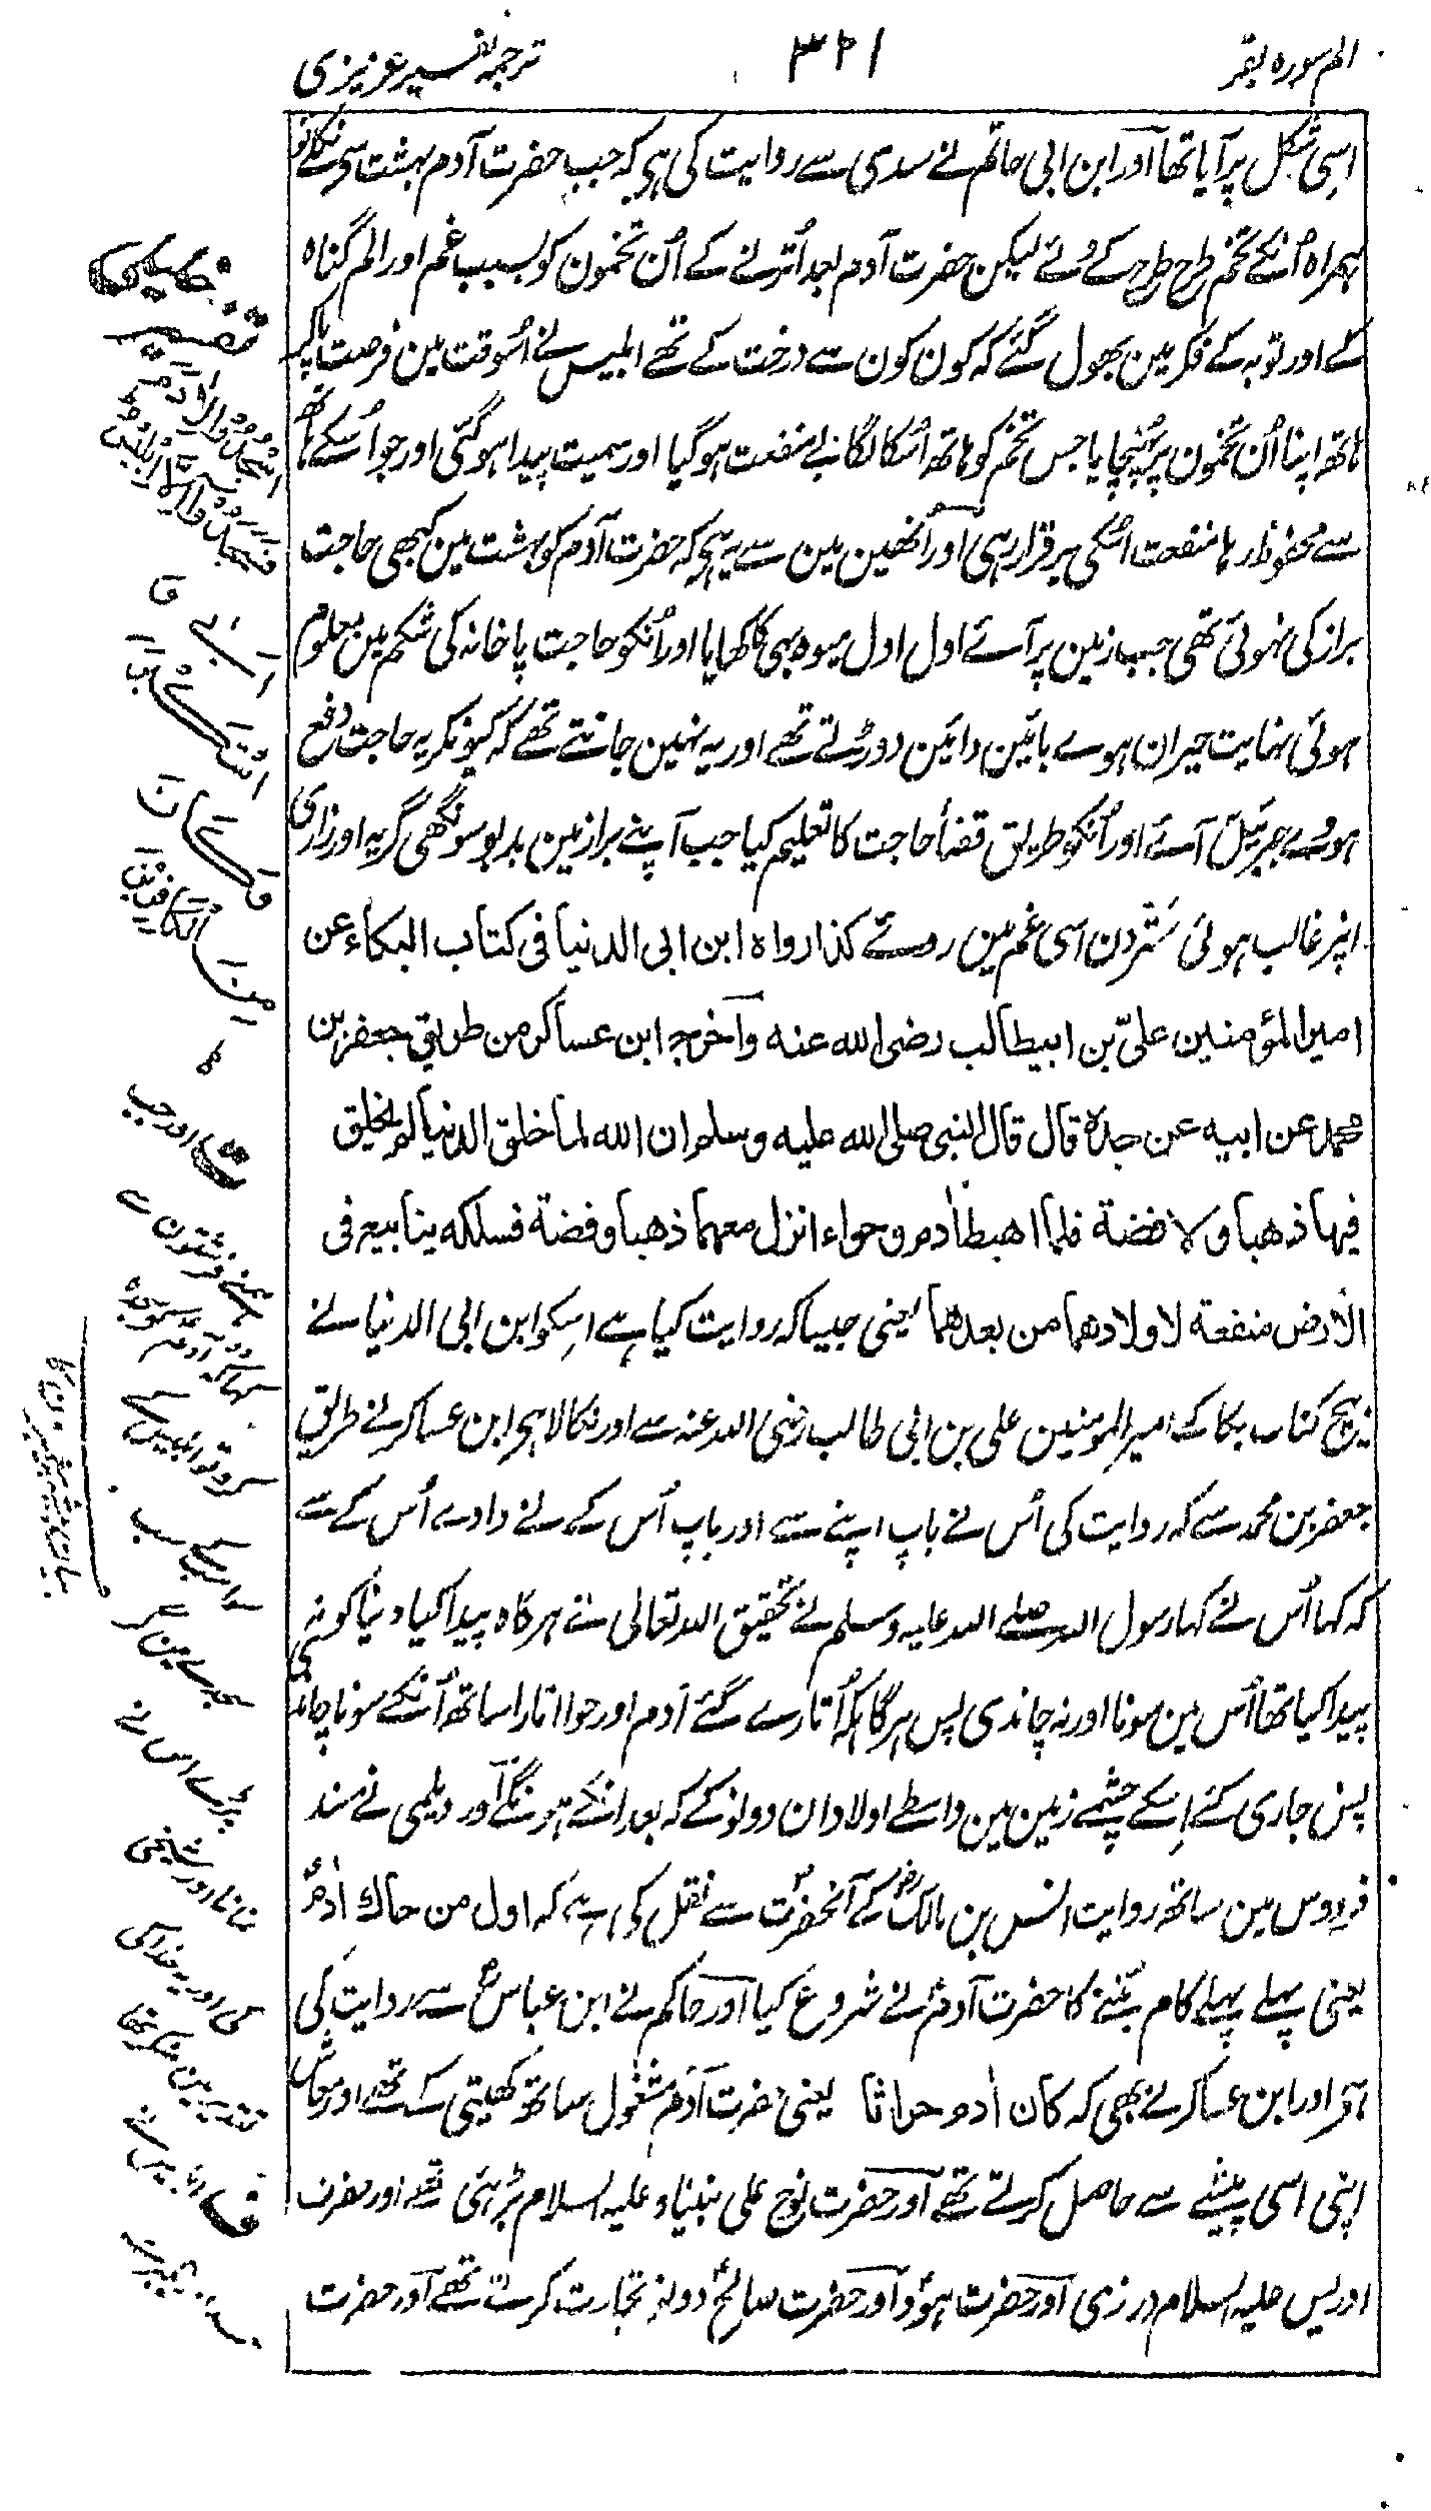 الم سورہ بقر
۳۲۱
ترجمہ تفسیر عزیزی
اسی شکل پر آیا تھا اور ابن ابی حاتم نے سدی سے روایت کی ہی کہ جب حضرت آدم بہشت سے نکلے تو
ہمراہ اُنکے تخم طرح طرح کے ہوئے لیکن حضرت آدم بعد اُترنے کے اُن تخمون کو بسبب غم اور الم گناہ
کے اور توبہ کے فکر مین بھول گئے کہ کون کون سے درخت کے تھے ابلیس نے اسُوقت مین فرصت پاکر
ہاتھ اپنا اُن تخمون پر پہنچایا جس تخم کو ہاتھ اسُکا لگا بے منفعت ہوگیا اور سمیت پیدا ہوگئی اور جو اُسکے ہاتھ
سے محفوظ رہا منفعت اسُکی برقرار رہی اور اُنھین مین سے یہ ہی کہ حضرت آدم کو بہشت مین کبھی حاجت
براز کی نہوئی تھی جب زمین پر آئے اول اول میوہ بہی کا کھایا اور اُنکو حاجت پاخانہ کی شکم مین معلوم
ہوئی نہایت حیران ہوے بائین دائین دوڑتے تھے اور یہ نہین جانتے تھے کہ کیونکر یہ حاجت دفع
ہووے جبرئیل آئے اور اُنکو طریق قضاٗ حاجت کا تعلیم کیا جب آپنے براز مین بدبو سونگھی گریہ اور زاری
اپنر غالب ہوئی ستر دن اسی غم مین روئے کذا رواہ ابن ابی الدنیا فی کتاب البکاء عن
امیر المؤمنین علیّ بن ابیطالب رضی الله عنہ وآخرجہ ابن عساکر من طریق جعفر بن
محمد عن ابیہ عن جدہ قال قال النبی صلی الله علیہ وسلم ان الله لما خلق الدنیا لم یخلق
فیہا ذھبا ولا فضة فلما اھبط اٰدم وحواء انزل معہما ذھبا وفضة فسلکہ ینابیع فی
الأرض منفعة لاولادھما من بعدھما یعنی جیسا کہ روایت کیا ہے اِسکو ابن ابی الدنیا نے
بیچ کتاب بکا کے امیر المومنین علی بن ابی طالب رضی اللہ عنہ سے اور نکالا ہی ابن عساکر نے طریق
جعفر بن محمد سے کہ روایت کی اُس نے باپ اپنے سے اور باپ اُس کے نے دادے اُس کے سے
کہ کہا اُس نے کہا رسول اللہ صلے اللہ علیہ وسلم نے تحقیق اللہ تعالی نے ہر گاہ پیدا کیا دنیا کو نہ
پیدا کیا تھا اُس مین سونا اور نہ چاندی پس ہر گاہ کہ اُتارے گئے آدم اور حوا اتارا ساتھ اُنکے سونا چاندی
پس جاری کئے اِسکے چشمے زمین مین واسطے اولاد ان دونو کے کہ بعد انکے ہونگے اور دیلمی نے مسند
فردوس مین ساتھ روایت انس بن مالکؓ کے آنحضرتؐ سے نقل کی ہے کہ اول من حاك اٰدمؑ
یعنی پہلے پہلے کام بُننے کا حضرت آدمؑ نے شروع کیا اور حاکم نے ابن عباسؓ سے روایت کی
اور ابن عساکر نے بھی کہ کان اٰدم حراثا یعنی حضرت آدمؑ مشغول ساتھ کھیتی کے تھے اور معاش
اپنی اسی پیشے سے حاصل کرتے تھے اور حضرت نوح علی نبیناء علیہ السلام بڑہئی تھے اور حضرت
ادریس علیہ السلام درزی اور حضرت ہودؑ اور حضرت صالحؑ دونو تجارت کرتے تھے اور حضرت
اور جب
ہمنے فرشتون سے
کہا کہ آدم کو سجدہ
کرو تو ابلیس کے
سوا سب کے سب
سجدے مین گر
پڑے اس نے
نہ مانا اور شیخی